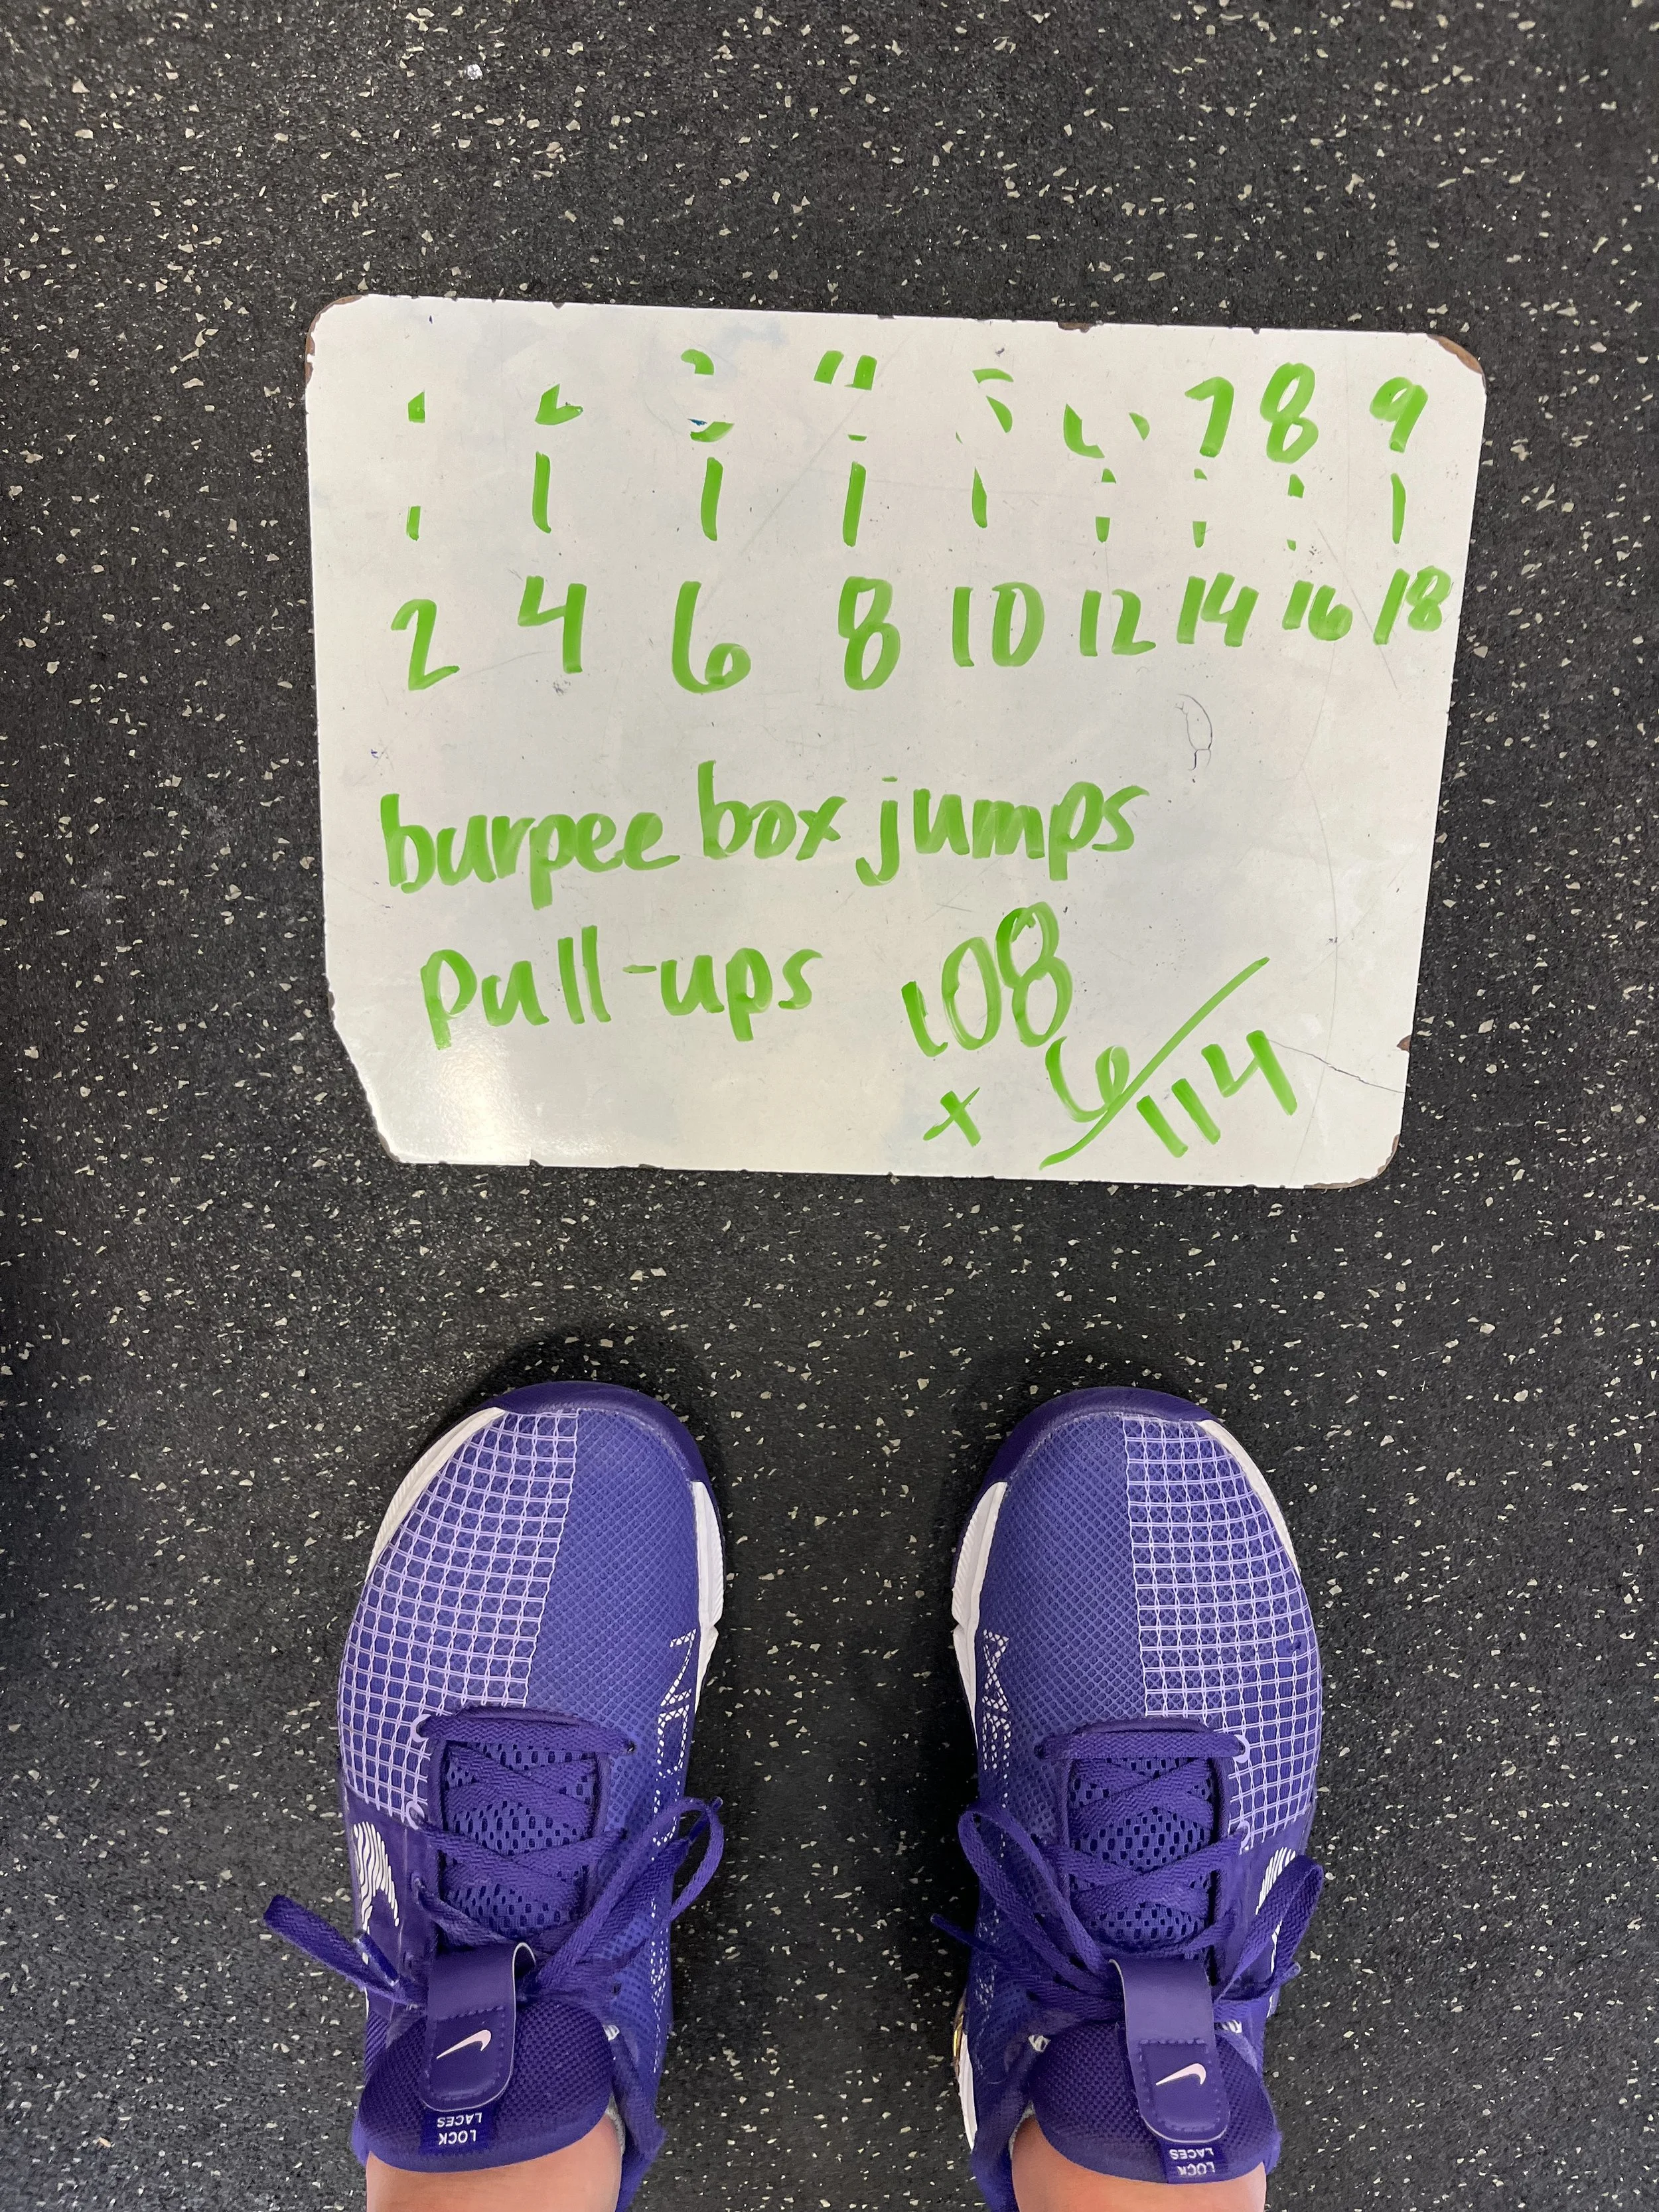 7 8 9
1 1 1 1 1
2 4 6 8 10 12 14 16 18
burpee box jumps
pull-ups 108
x 6/114
LOCK LACES
LOCK LACES